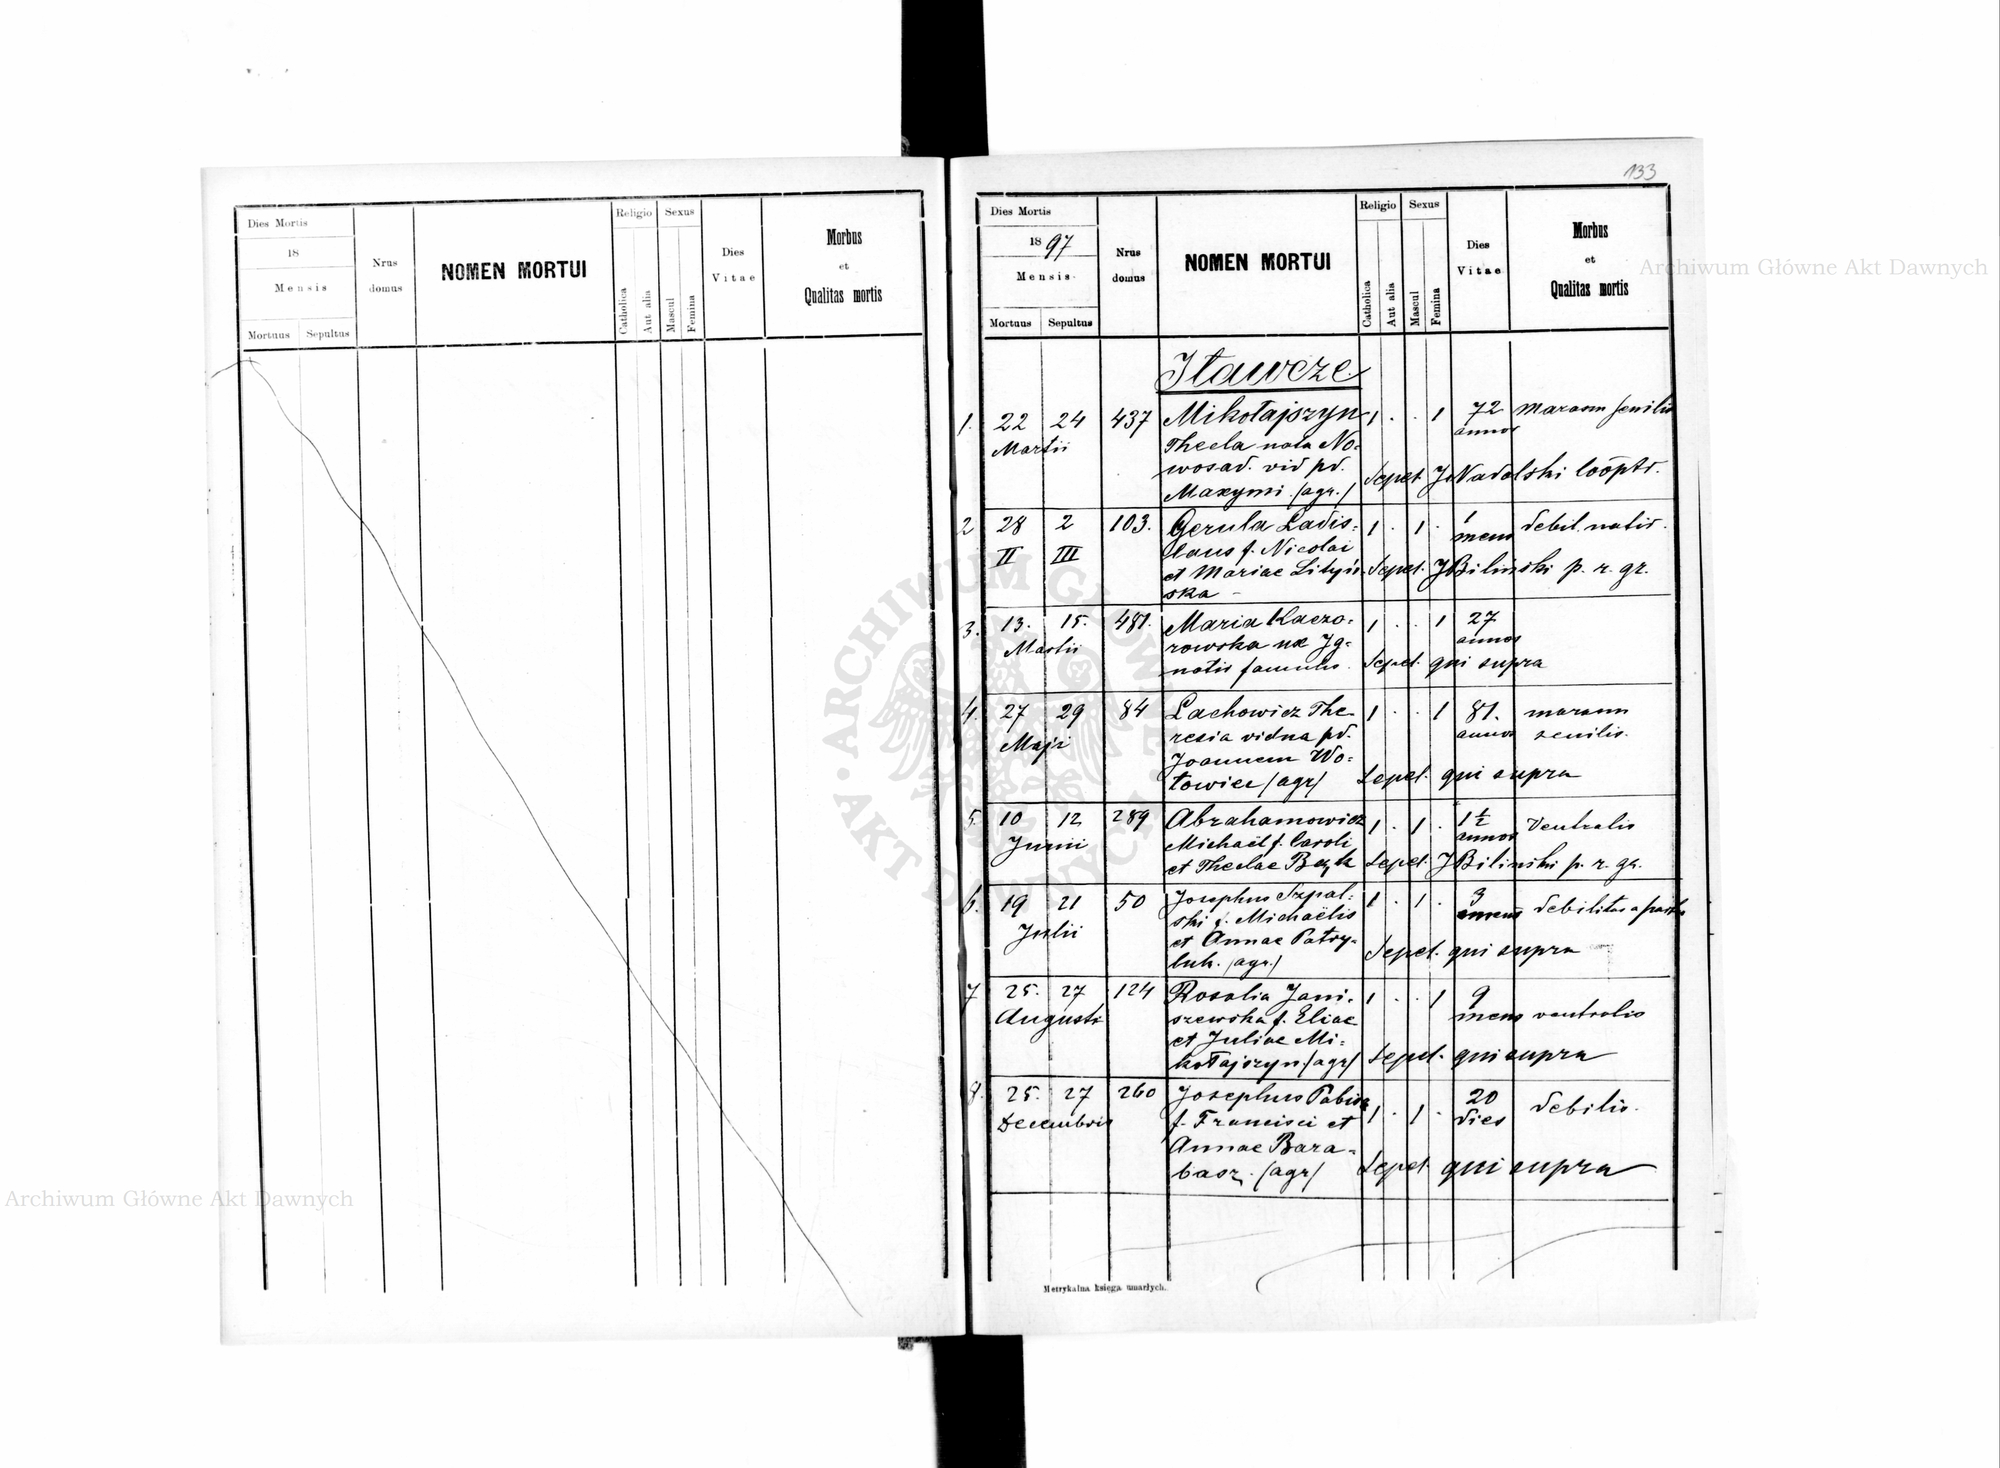 133
Dies Mortis
18
Mensis
Mortuus Sepultus
Nrus
domus
NOMEN MORTUI
Religio
Catholica
Aut alia
Sexus
Mascul
Femina
Dies
Vitae
Morbus
et
Qualitas mortis
Dies Mortis
1897
Mensis
Mortuus Sepultus
Nrus
domus
NOMEN MORTUI
Religio
Catholica
Aut alia
Sexus
Mascul
Femina
Dies
Vitae
Morbus
et
Qualitas mortis
Iławcze
1. 22 24 437 Mikołajszyn 1 . . 1 72 marasm senilis
Martii Thecla nata No= annos
wosad. vid pd.
Maxymi. (agr.) Sepel. J Nadolski cooptr.
2 28 2 103. Gerula Ladis= 1 . 1 . 1 debil. natio.
II III laus f. Nicolai mens
et Mariae Lityń= Sepel. J Bilinski p. r. gr.
ska –
3. 13. 15. 481. Maria Kaczo= 1 . . 1 27
Martii rowska ux Jg= annos
natii famulus. Sepel. qui supra
4. 27 29 84 Lachowicz The= 1 . . 1 81. marasm
Maji resia vidua pd. annos senilis.
Joannem Wo=
towiec (agr) Sepel. qui supra
5. 10 12 289 Abrahamowicz 1 . 1 . 1½ Ventralis
Junii Michaël f. Caroli annos
et Theclae Bezk Sepel. J Bilinski p. r. gr.
6. 19 21 50 Josephus Szpal= 1 . 1 . 3 debilitas a partu
Julii ski f. Michaëlis mens
et Annae Patry=
luk. (agr.) Sepel. qui supra
7 25. 27 124 Rosalia Jani= 1 . . 1 9
Augusti szewska f. Eliae mens ventralis
et Juliae Mi=
kołajszyn (agr) Sepel. qui supra
8. 25. 27 260 Josephus Pabisz 1 . 1 . 20 debilis.
Decembris f. Francisci et dies
Annae Bara=
basz. (agr) Sepel. qui supra
Metrykalna księga umarłych.
Archiwum Główne Akt Dawnych
Archiwum Główne Akt Dawnych
ARCHIWUM GŁÓWNE AKT DAWNYCH